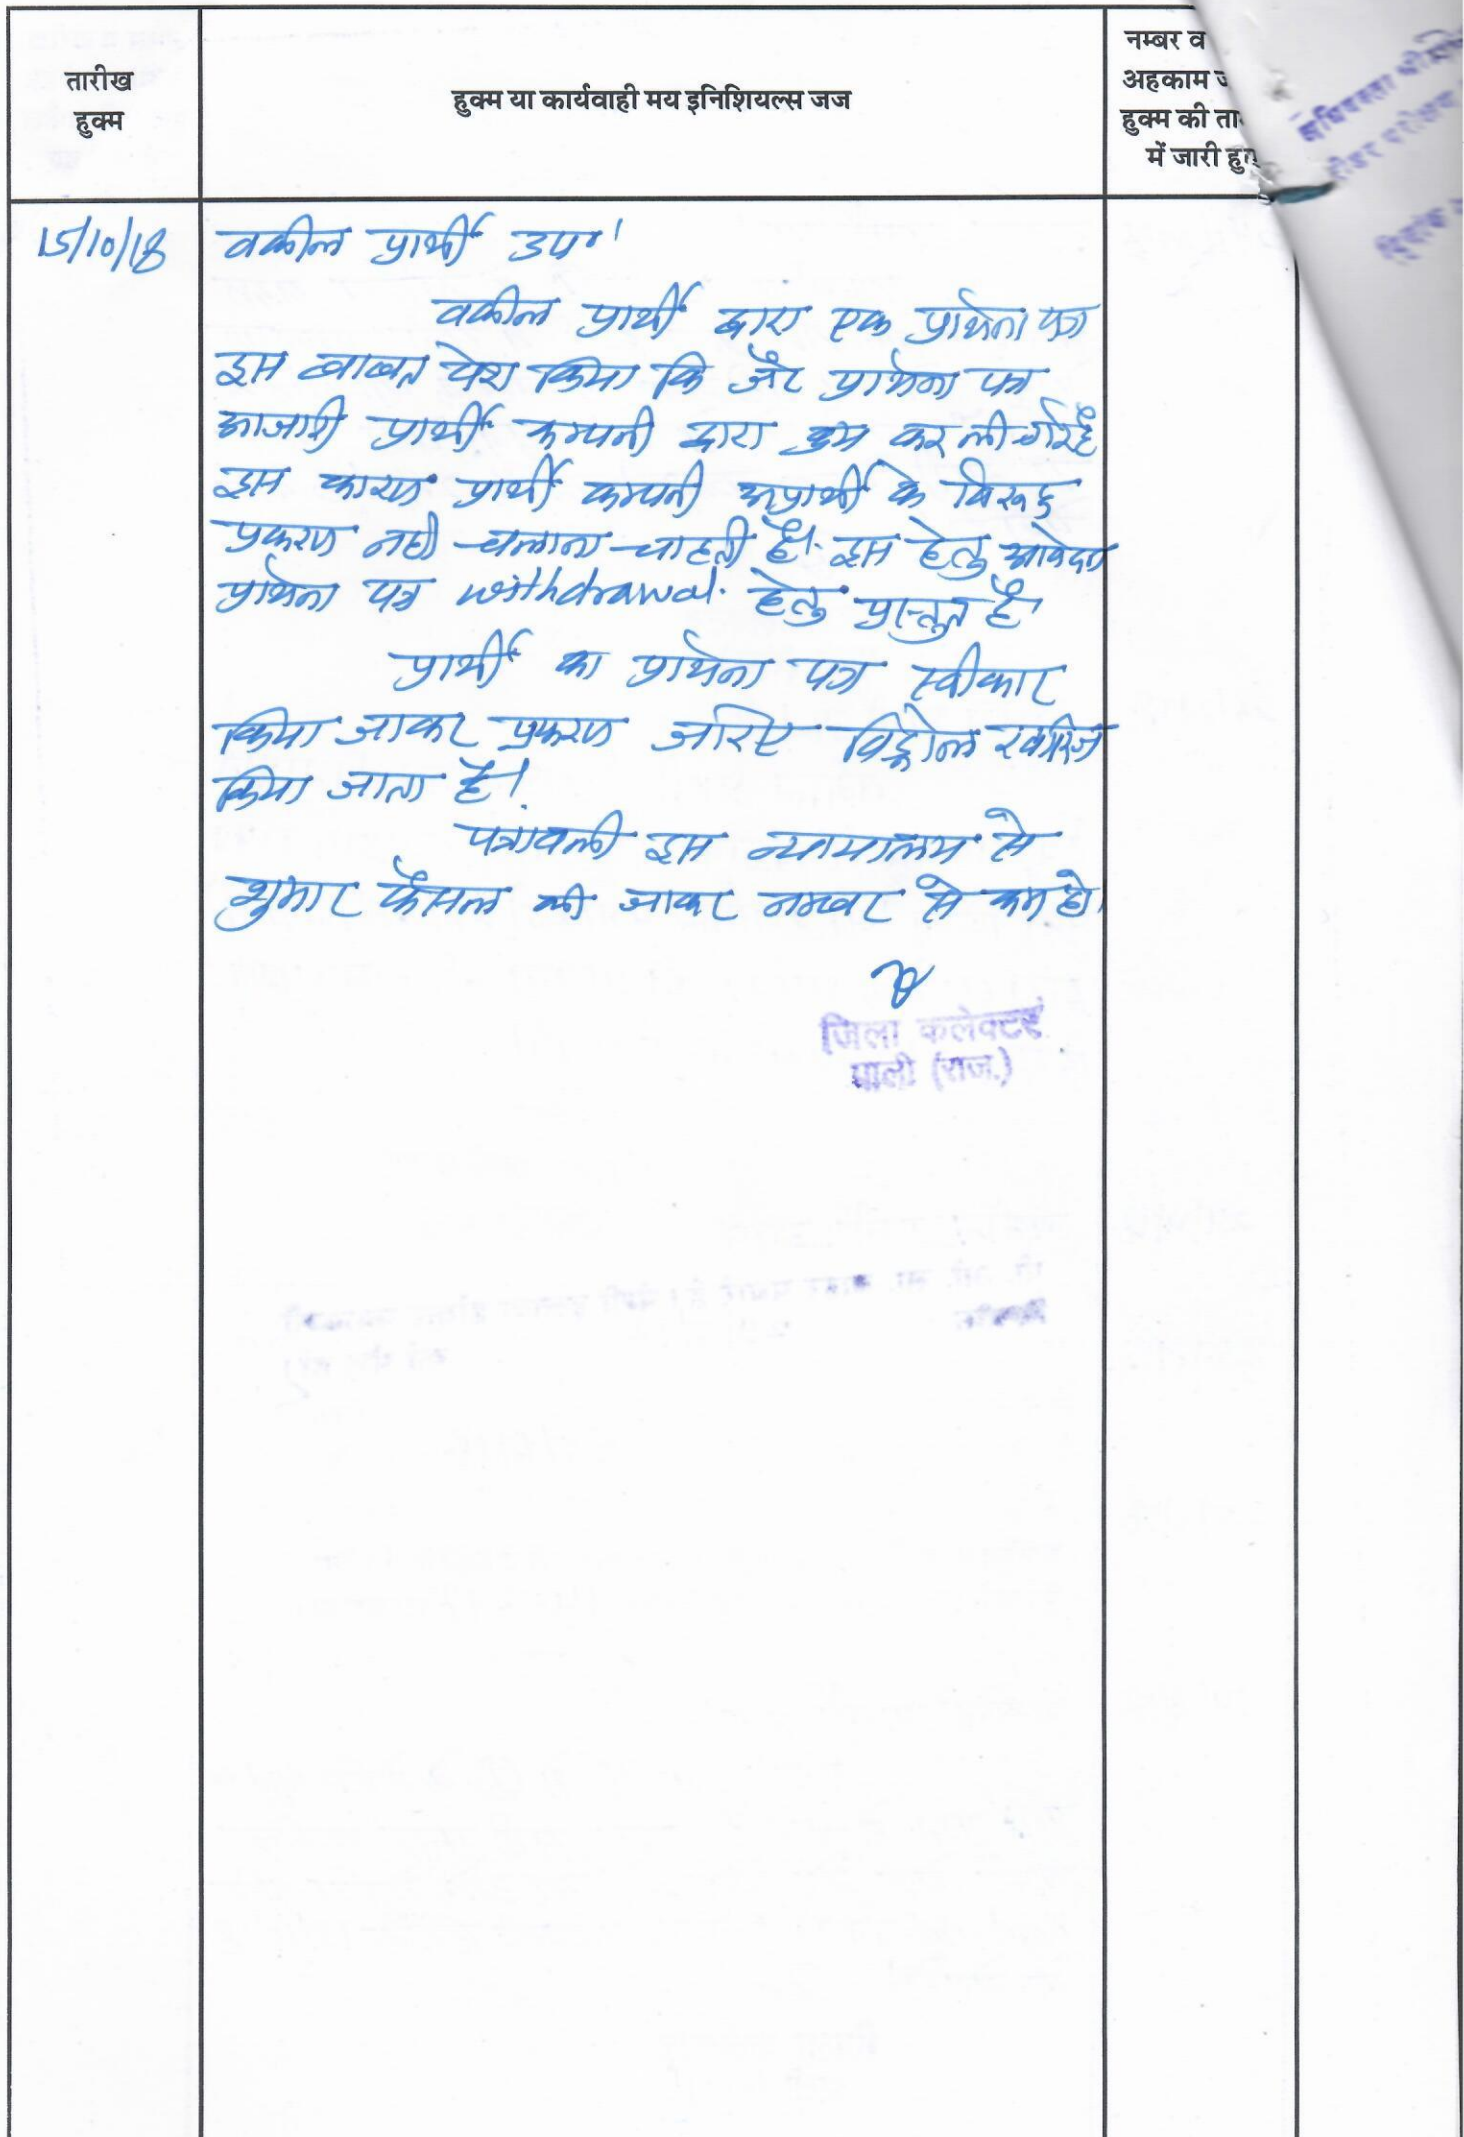 तारीख
हुक्म
हुक्म या कार्यवाही मय इनिशियल्स जज
नम्बर व
अहकाम ज
हुक्म की ता
में जारी हुए
15/10/18 वकील प्रार्थी उप०।
वकील प्रार्थी द्वारा एक प्रार्थना पत्र
इस बाबत पेश किया कि प्रार्थना पत्र
प्रार्थी कम्पनी द्वारा कर ली गई है
इस कारण प्रार्थी कम्पनी अप्रार्थी के विरूद्ध
प्रकरण नही चलाना चाहती है। इस हेतु आवेदन
प्रार्थना पत्र withdrawal हेतु प्रस्तुत है।
प्रार्थी का प्रार्थना पत्र स्वीकार
किया जाकर प्रकरण जरिए विड्रोल खारिज
किया जाता है।
पत्रावली इस न्यायालय से
शुमार फैसल की जाकर नम्बर से कम हो।
जिला कलेक्टर
पाली (राज.)